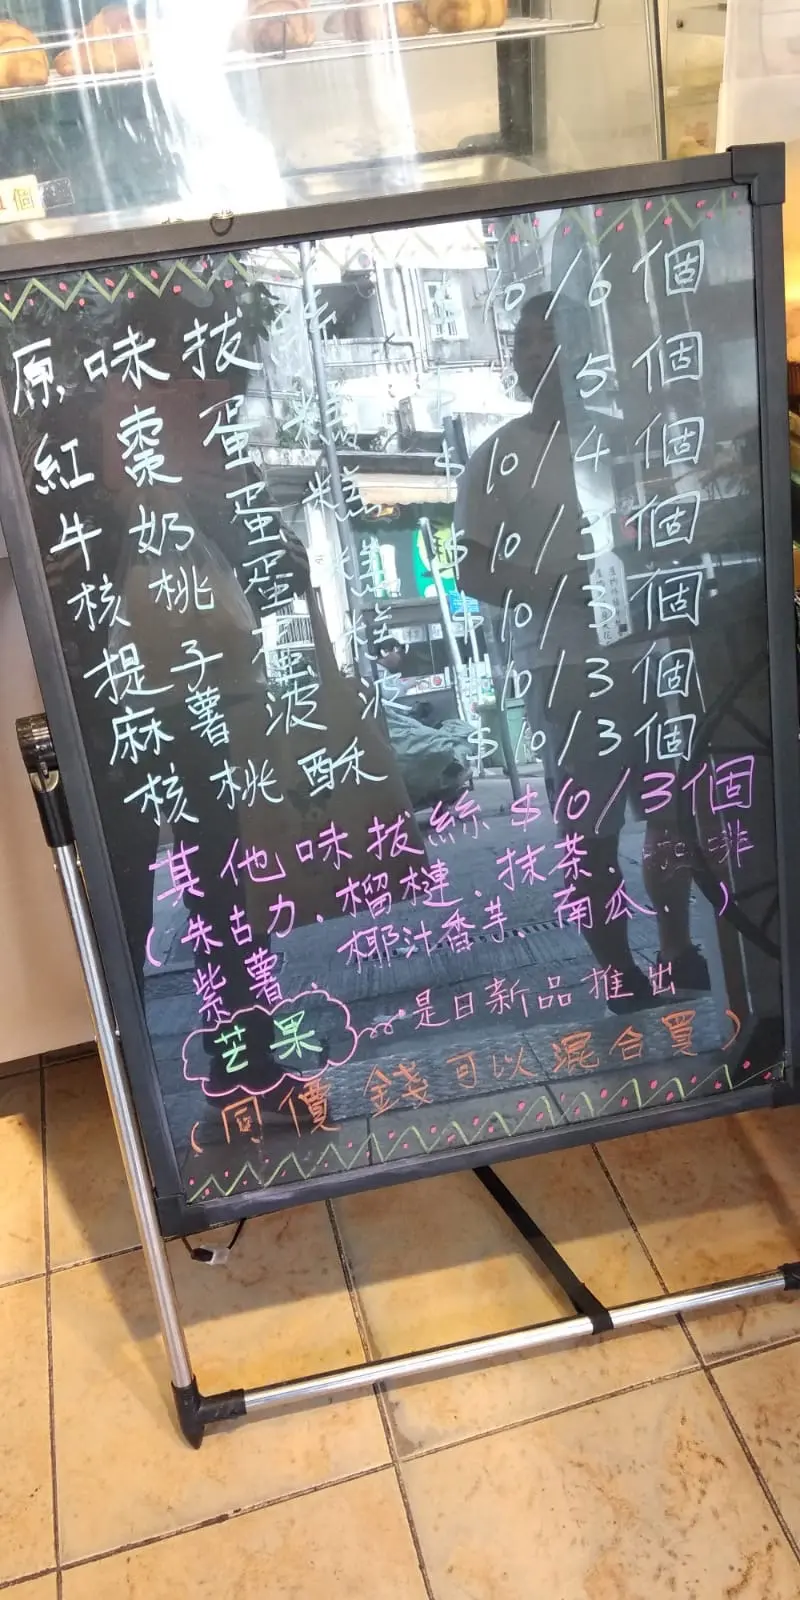 1個
原味拔絲 $10/6個
紅棗蛋糕 $10/5個
牛奶蛋糕 $10/4個
核桃蛋糕 $10/3個
提子蛋糕 $10/3個
麻薯波波 $10/3個
核桃酥 $10/3個
其他味拔絲 $10/3個
(朱古力.榴槤.抹茶.咖啡
紫薯.椰汁香芋.南瓜.)
芒果 是日新品推出
(同價錢可以混合買)